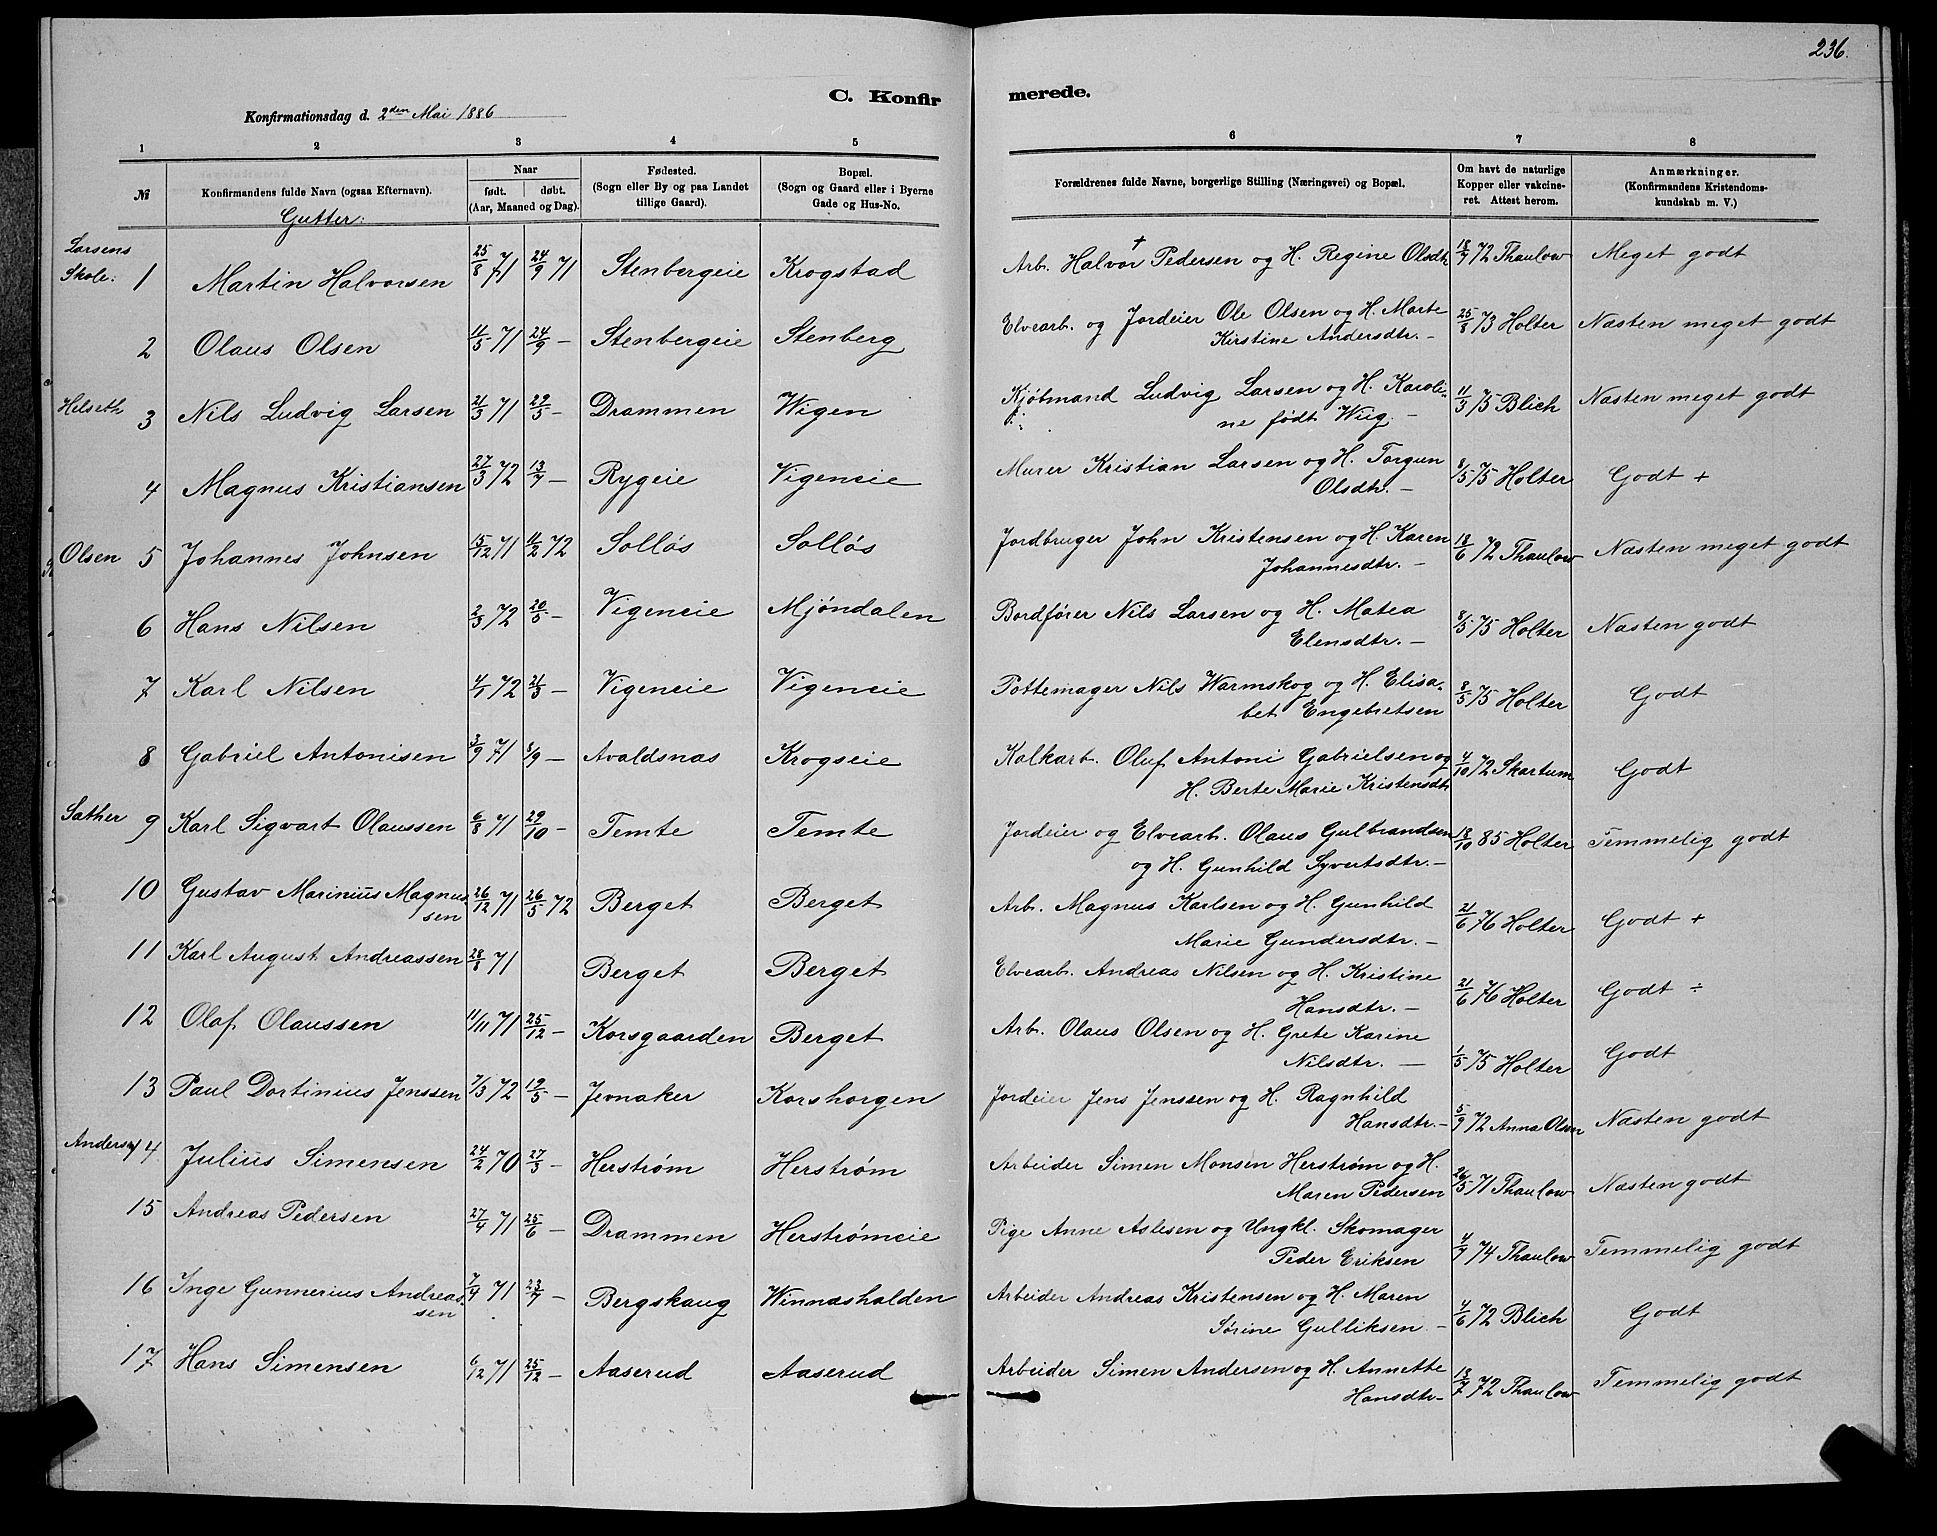 236.
C. Konfirmerede.
Konfirmationsdag d. 2den Mai 1886
1 2 3 4 5 6 7 8
№ Konfirmandens fulde Navn (ogsaa Efternavn). Naar født. døbt. (Aar, Maaned og Dag). Fødested. (Sogn eller By og paa Landet tillige Gaard). Bopæl. (Sogn og Gaard eller i Byerne Gade og Hus-No. Forældrenes fulde Navne, borgerlige Stilling (Næringsvei) og Bopæl. Om havt de naturlige Kopper eller vakcineret. Attest herom. Anmærkninger. (Konfirmandens Kristendomskundskab m. V.)
Gutter:
Larsens Skole: 1 Martin Halvorsen 25/8 71 24/9 71 Stenbergeie Krogstad Arb. Halvor + Pedersen og H. Regine Olsdtr. 18/7 72 Thaulow Meget godt
2 Olaus Olsen 11/5 71 24/9 — Stenbergeie Stenberg Elvearb. og Jordeier Ole Olsen og H. Marte Kirstine Andersdtr. — 25/8 73 Holter Næsten meget godt
Helseth 3 Nils Ludvig Larsen 21/3 71 29/5 — Drammen Wigen Kjöbmand Ludvig Larsen og H. Karoline født Wiig. — 11/3 75 Blich Næsten meget godt
4 Magnus Kristiansen 27/3 72 13/7 — Rygeie Vigeneie Murer Kristian Larsen og H. Torgun Olsdtr. — 8/5 75 Holter Godt +
Olsen 5 Johannes Johnsen 15/12 71 11/2 72 Sollös Sollös Jordbruger John Kristensen og H. Karen Johannesdtr. — 18/6 72 Thaulow Næsten meget godt
6 Hans Nilsen 2/3 72 20/5 — Vigeneie Mjöndalen Bordförer Nils Larsen og H. Matea Elensdtr. — 8/5 75 Holter Næsten godt
7 Karl Nilsen 4/1 72 21/3 — Vigeneie Vigeneie Pottemager Nils Warmskog og H. Elisabet Engebretsen 8/5 75 Holter Godt
8 Gabriel Antonisen 3/9 71 8/9 — Avaldsnæs Krogseie Kalkarb. Oluf Antoni Gabrielsen og H. Berte Marie Kristensdtr. 4/10 72 Skartum Godt
Sæther 9 Karl Sigvart Olaussen 6/8 71 29/10 — Temte Temte Jordeier og Elvearb. Olaus Gulbrandsen og H. Gunhild Syvertsdtr. — 18/10 85 Holter Temmelig godt
10 Gustav Marinius Magnussen 26/12 71 26/5 72 Berget Berget Arb. Magnus Karlsen og H. Gunhild Marie Gundersdtr. — 21/6 76 Holter Godt +
11 Karl August Andreassen 28/8 71 Berget Berget Elvearb. Andreas Nilsen og H. Kristine Hansdtr. — 21/6 76 Holter Godt ÷
12 Olaf Olaussen 11/11 71 25/12 — Korsgaarden Berget Arb. Olaus Olsen og H. Grete Karine Nilsdtr. — 1/5 75 Holter Godt
13 Paul Dortinius Jenssen 7/3 72 19/5 — Jevnaker Korshorgen Jordeier Jens Jenssen og H. Ragnhild Hansdtr. — 5/9 72 Anna Olsen Næsten godt
Andersen 14 Julius Simensen 24/2 70 27/3 — Herstrøm Herstrøm Arbeider Simen Monsen Herstrøm og H. Maren Pedersen 26/5 71 Thaulow Næsten godt
15 Andreas Pedersen 27/4 71 25/6 — Drammen Herstrømeie Pige Anne Aslesen og Ungkl. Skomager Peder Eriksen 4/7 74 Thaulow Temmelig godt
16 Inge Gunnerius Andreassen 7/4 71 23/7 — Bergskaug Winnæshalden Arbeider Andreas Kristensen og H. Maren Sørine Gulliksen. — 4/6 72 Blich Godt
17 Hans Simensen 6/12 71 25/12 — Aaserud Aaserud Arbeider Simen Andersen og H. Annette Hansdtr — 18/7 72 Thaulow Temmelig godt